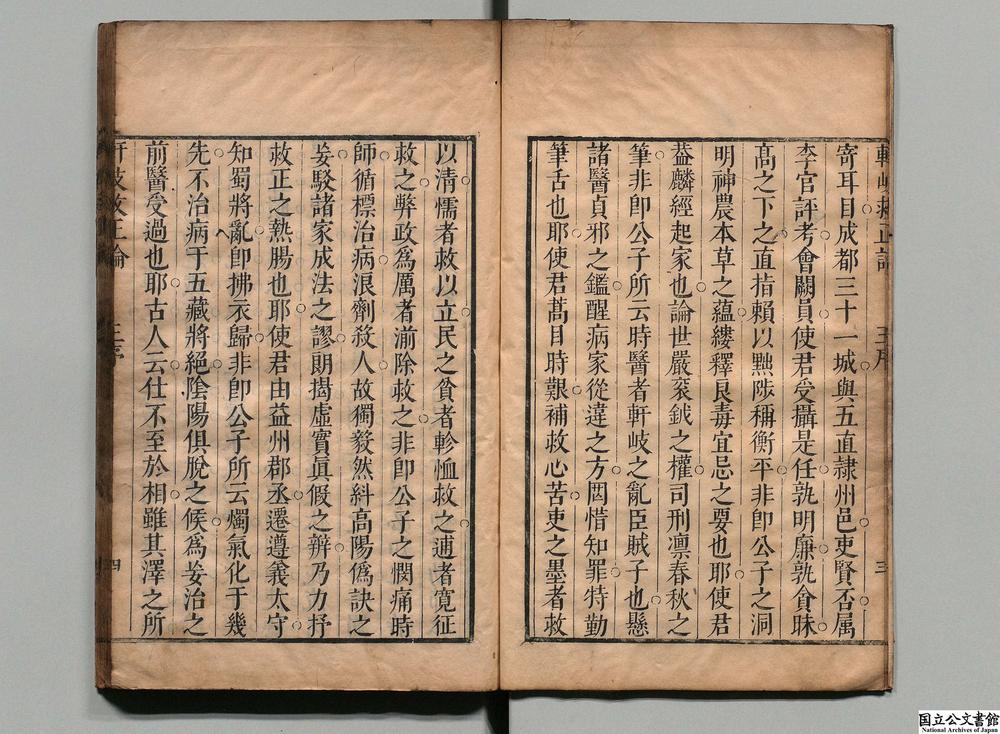 軒岐救正論 王序 三
寄耳目成都三十一城與五直隷州邑吏賢否属
李官評考會闕員使君受攝是任孰明廉孰貪昧
高之下之直指賴以黜陟稱衡平非即公子之洞
明神農本草之蘊縷釋良毒宜忌之要也耶使君
葢麟經起家也論世嚴袞鉞之權司刑凛春秋之
筆非即公子所云時醫者軒岐之亂臣賊子也懸
諸醫貞邪之鑑醒病家從違之方固惜知罪特勤
筆舌也耶使君蒿目時艱補救心苦吏之墨者救
以清懦者救以立民之貧者軫恤救之逋者寛征
救之弊政爲厲者湔除救之非即公子之憫痛時
師循標治病浪劑殺人故獨毅然糾高陽僞訣之
妄駁諸家成法之謬朗揭虚實眞假之辨乃力抒
救正之熱腸也耶使君由益州郡丞遷遵義太守
知蜀將亂即拂衣歸非即公子所云燭氣化于幾
先不治病于五藏將絕陰陽俱脫之候爲妄治之
前醫受過也耶古人云仕不至於相雖其澤之所
軒岐救正論 王序 四
国立公文書館
National Archives of Japan